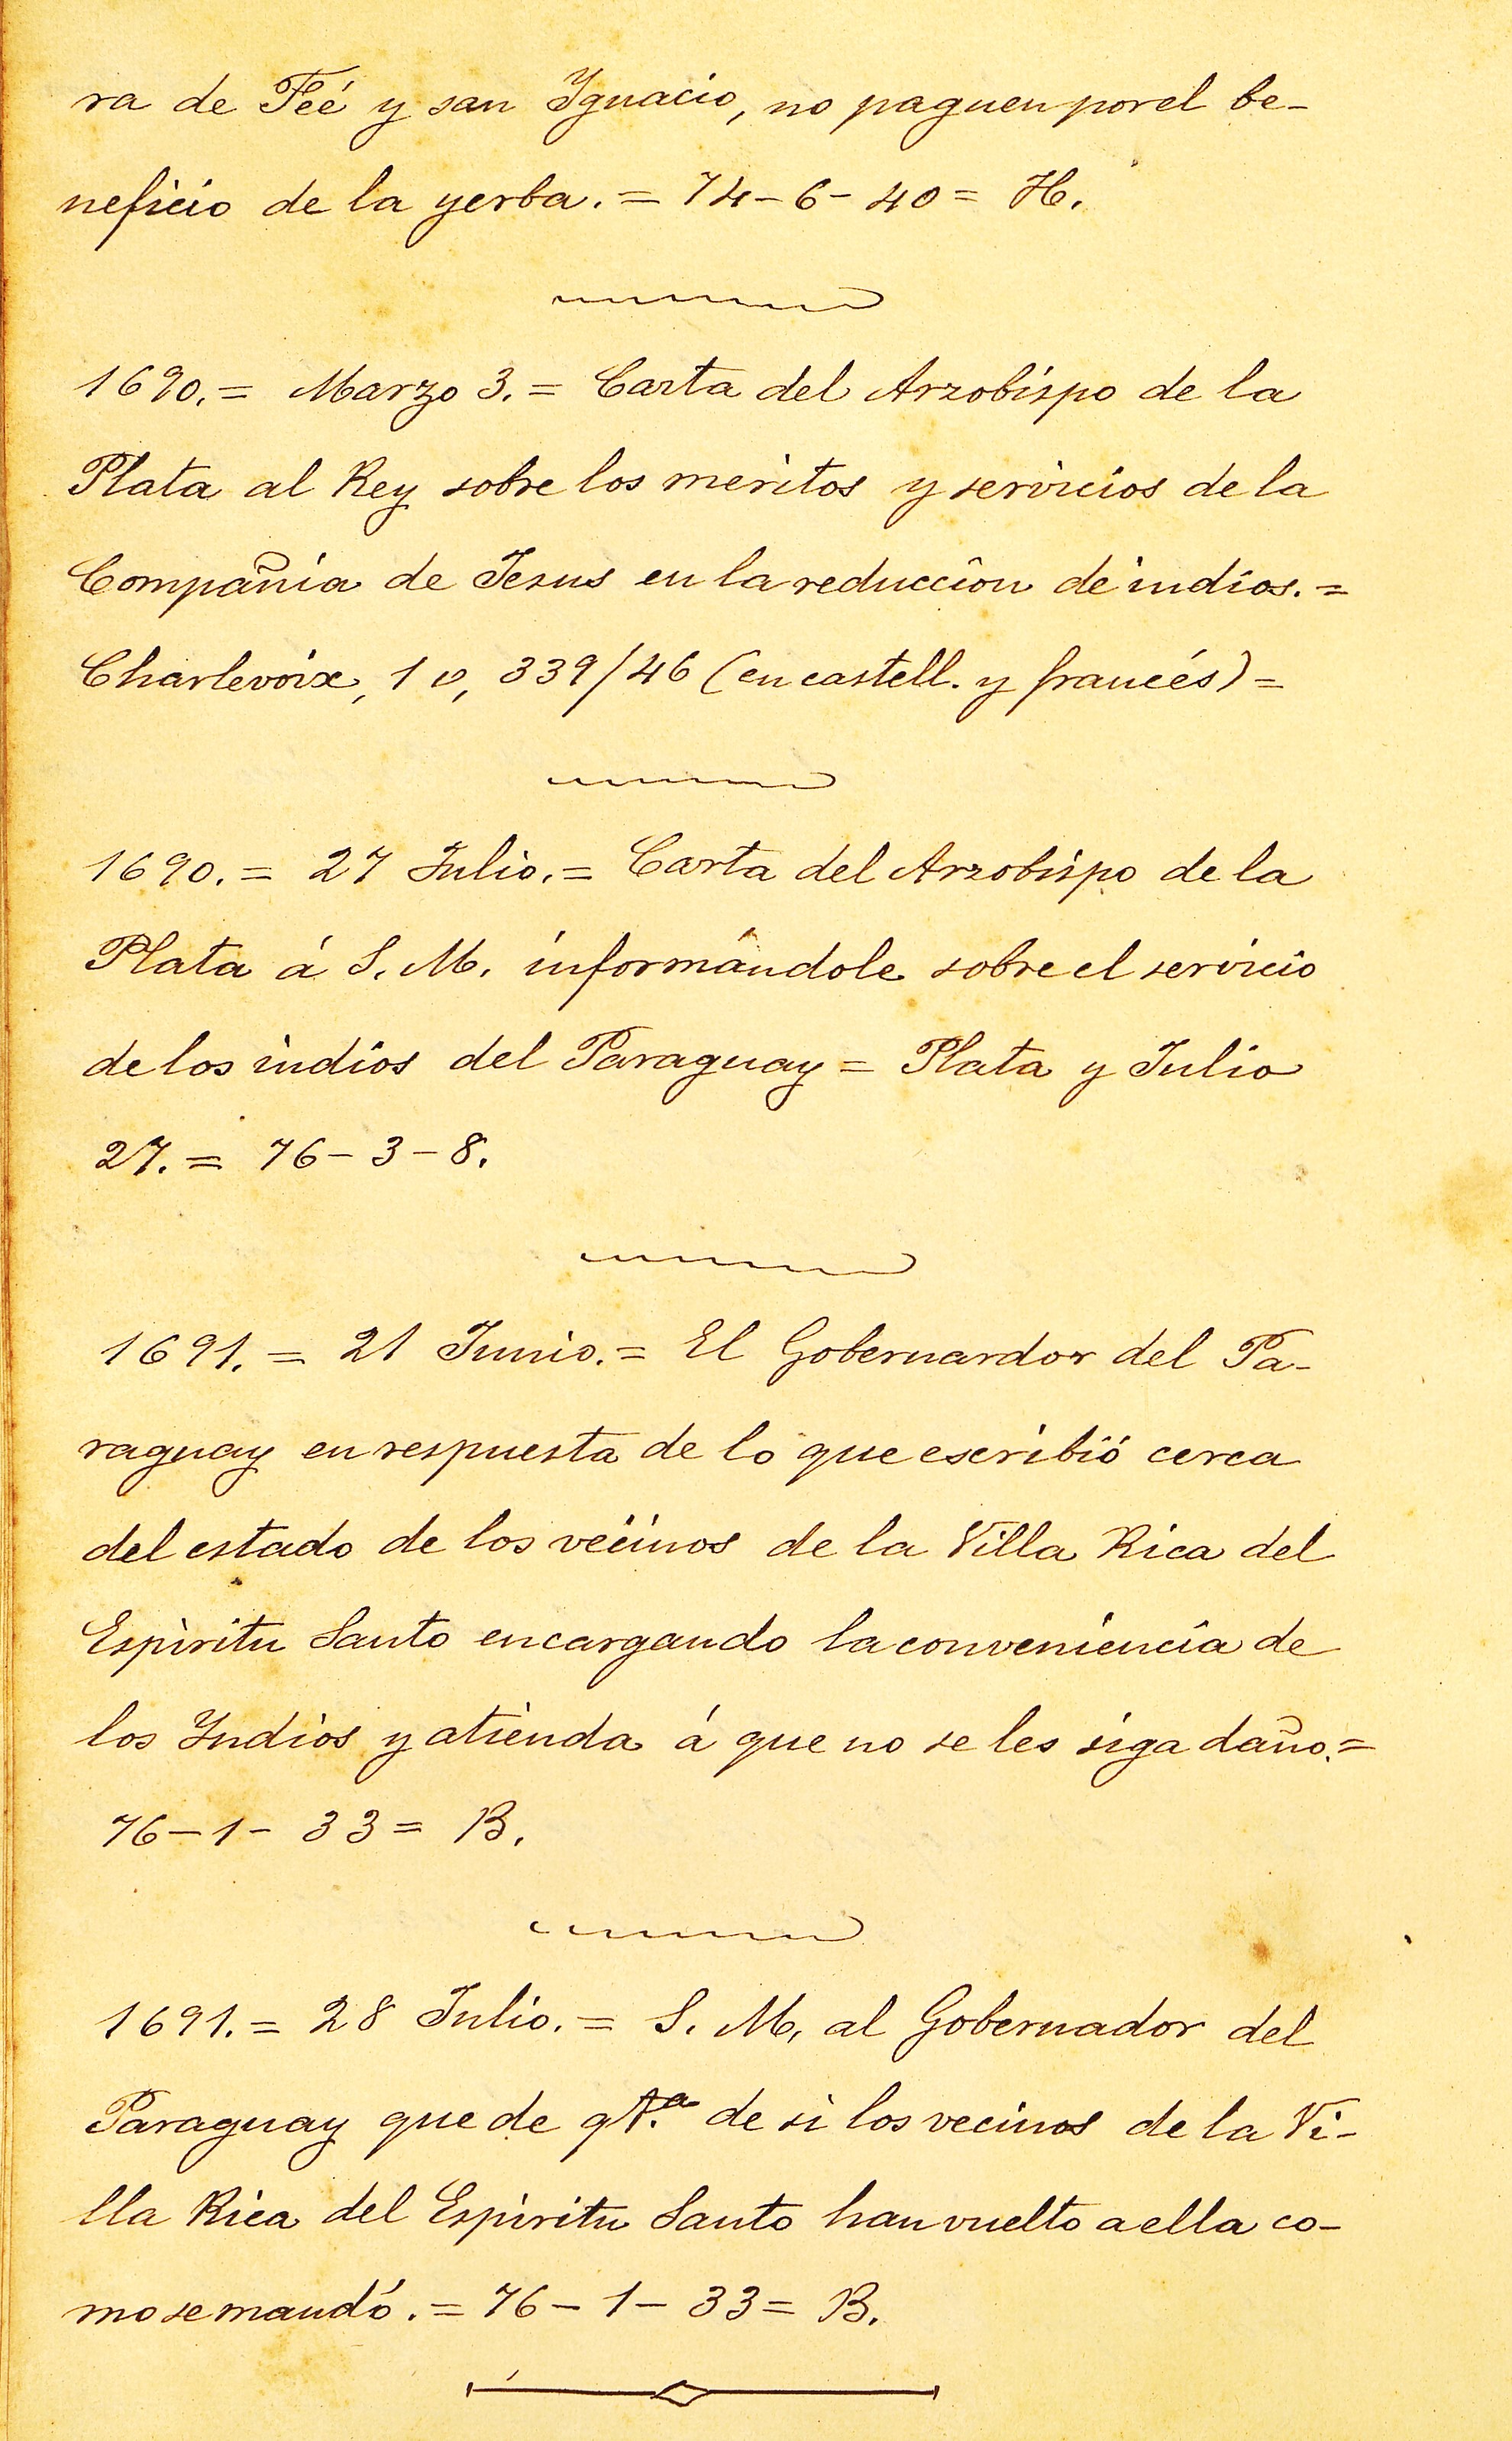 ra de Feé y san Ygnacio, no paguen por el be-
neficio de la yerba. = 74-6-40 = H.
1690. = Marzo 3. = Carta del Arzobispo de la
Plata al Rey sobre los meritos y servicios de la
Compañia de Jesus en la reduccion de indios. =
Charlevoix, 1 v, 339/46 (en castell. y francés) =
1690. = 27 Julio. = Carta del Arzobispo de la
Plata á S. M. informándole sobre el servicio
de los indios del Paraguay = Plata y Julio
27. = 76-3-8.
1691. = 21 Junio. = El Gobernardor del Pa-
raguay en respuesta de lo que escribió cerca
del estado de los vecinos de la Villa Rica del
Espiritu Santo encargando la conveniencia de
los Yndios y atienda á que no se les siga daño. =
76-1-33 = B.
1691. = 28 Julio. = S. M. al Gobernador del
Paraguay que de de si los vecinos de la Vi-
lla Rica del Espiritu Santo han vuelto a ella co-
mo se mandó. = 76-1-33 = B.